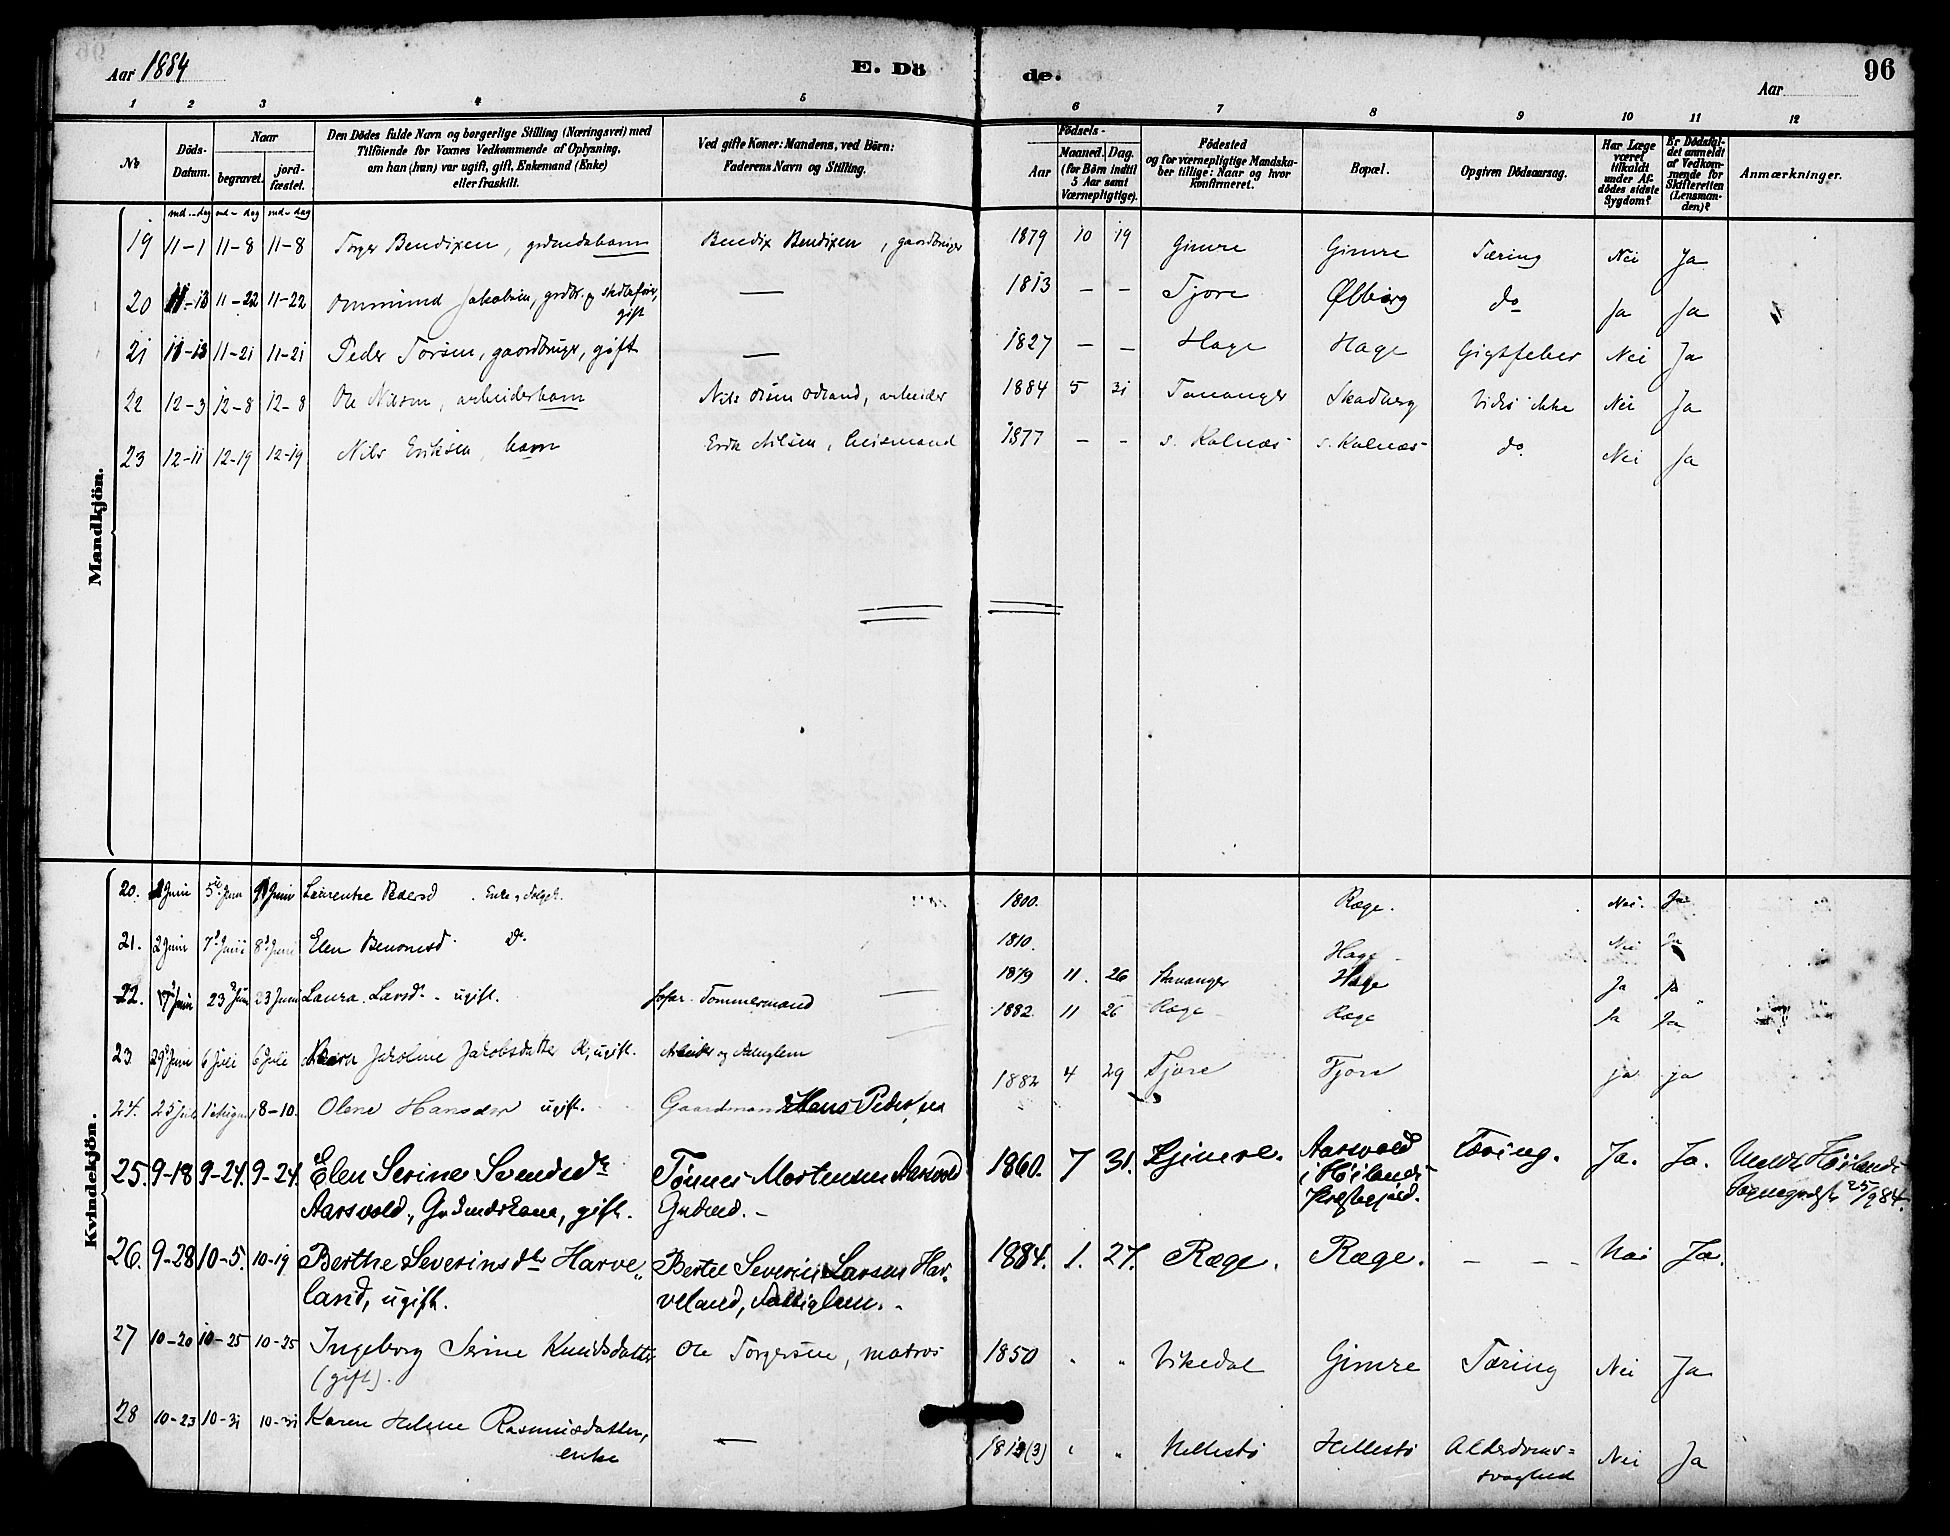 Aar 1884 E. Dö de. Aar 96
1 2 3 4 5 6 7 8 9 10 11 12
No
Döds-Datum.
Naar
begravet. jord-fæstet.
Den Dödes fulde Navn og borgerlige Stilling (Næringsvei) med
Tilföiende for Voxnes Vedkommende af Oplysning,
om han (hun) var ugift, gift, Enkemand (Enke)
eller fraskilt.
Ved gifte Koner: Mandens, ved Börn:
Faderens Navn og Stilling.
Födsels-
Aar Maaned. Dag.
(for Børn indtil
5 Aar samt
Værnepligtige).
Födested
og for værnepligtige Mandska-
ber tillige: Naar og hvor
konfirmeret.
Bopæl.
Opgiven Dödsaarsag.
Har Læge
været
tilkaldt
under Af-
dödes sidste
Sygdom?
Er Dödsfal-
det anmeldt
af Vedkom-
mende for
Skifteretten
(Lensman-
den)?
Anmærkninger.
md - dag md - dag md - dag
Mandkjön.
19 11-1 11-8 11-8 Torger Bendixen, grdmdsbarn Bendix Bendixen, gaardbruger 1879 10 19 Gimre Gimre Tæring Nei Ja
20 11-13 11-22 11-22 Ommund Jakobsen, grdbr. og
gift — 1813 — — Tjore Ølberg do Ja Ja
21 11-13 11-21 11-21 Peder Torsen, gaardbruger, gift — 1827 — — Hage Hage Gigtfeber Nei Ja
22 12-3 12-8 12-8 Ole Nilsen, arbeiderbarn Nils Odland, arbeider 1884 5 31 Tananger Skadberg Vides ikke Nei Ja
23 12-11 12-19 12-19 Nils Eriksen, barn Erik Nilsen, husmand 1877 — — s. Kolnæs s. Kolnæs do Nei Ja
Kvindekjön.
20. Juni 5te Juni Juni Laurentse Pedersd. Enke 1800. Ræge. Nei. Ja
21. 2 Juni 7d Juni 8d Juni Elen Benonesd. 1810. Hage Nei Ja
22. 17 Juni 23d Juni 23 Juni Laura Larsdr. ugift. Tommermand — 1879 11. 26 Stavanger Hage Ja Ja
1882. 11 26 Ræge Ræge Ja Ja
23 29d Juni 6 Juli 6 Juli Jakoline Jakobsdatter ugift. Arbeider og
1882 4 29 Tjore Tjore ja ja
24. 25 Juli 1 August 8-10. Olene Hansdtr ugift. Gaardmand Hans Pedersen
25. 9-18 9-24. 9-24. Elen Serine Svendsdtr
Aarsvold, Grdmdskone, gift. Tønnes Mortensen Aarsvold
Grdmd. – 1860. 7 31. Gjimre. Aarsvold
i Høilands
Præstegjæld. Tæring. Ja. Ja. Meldt Høilands
Sogneprest 25/9 84.
26. 9-28 10-5. 10-19 Berthe Severinsdtr Harve-
land, ugift. Bertel Severin Larsen Har-
veland, Fattiglem. – 1884. 1. 27. Ræge. Ræge. – – Nei Ja.
27 10-20 10-25 10-25 Ingeborg Serine Knudsdatter
(gift). Ole Torgersen, matros 1850 " " Vikedal Gimre Tæring Nei Ja
28 10-23 10-31 10-31 Karen Helene Rasmusdatter,
enke — 1812(3) " " Hellestø Hellestø Alderdoms-
svaghed Nei Ja